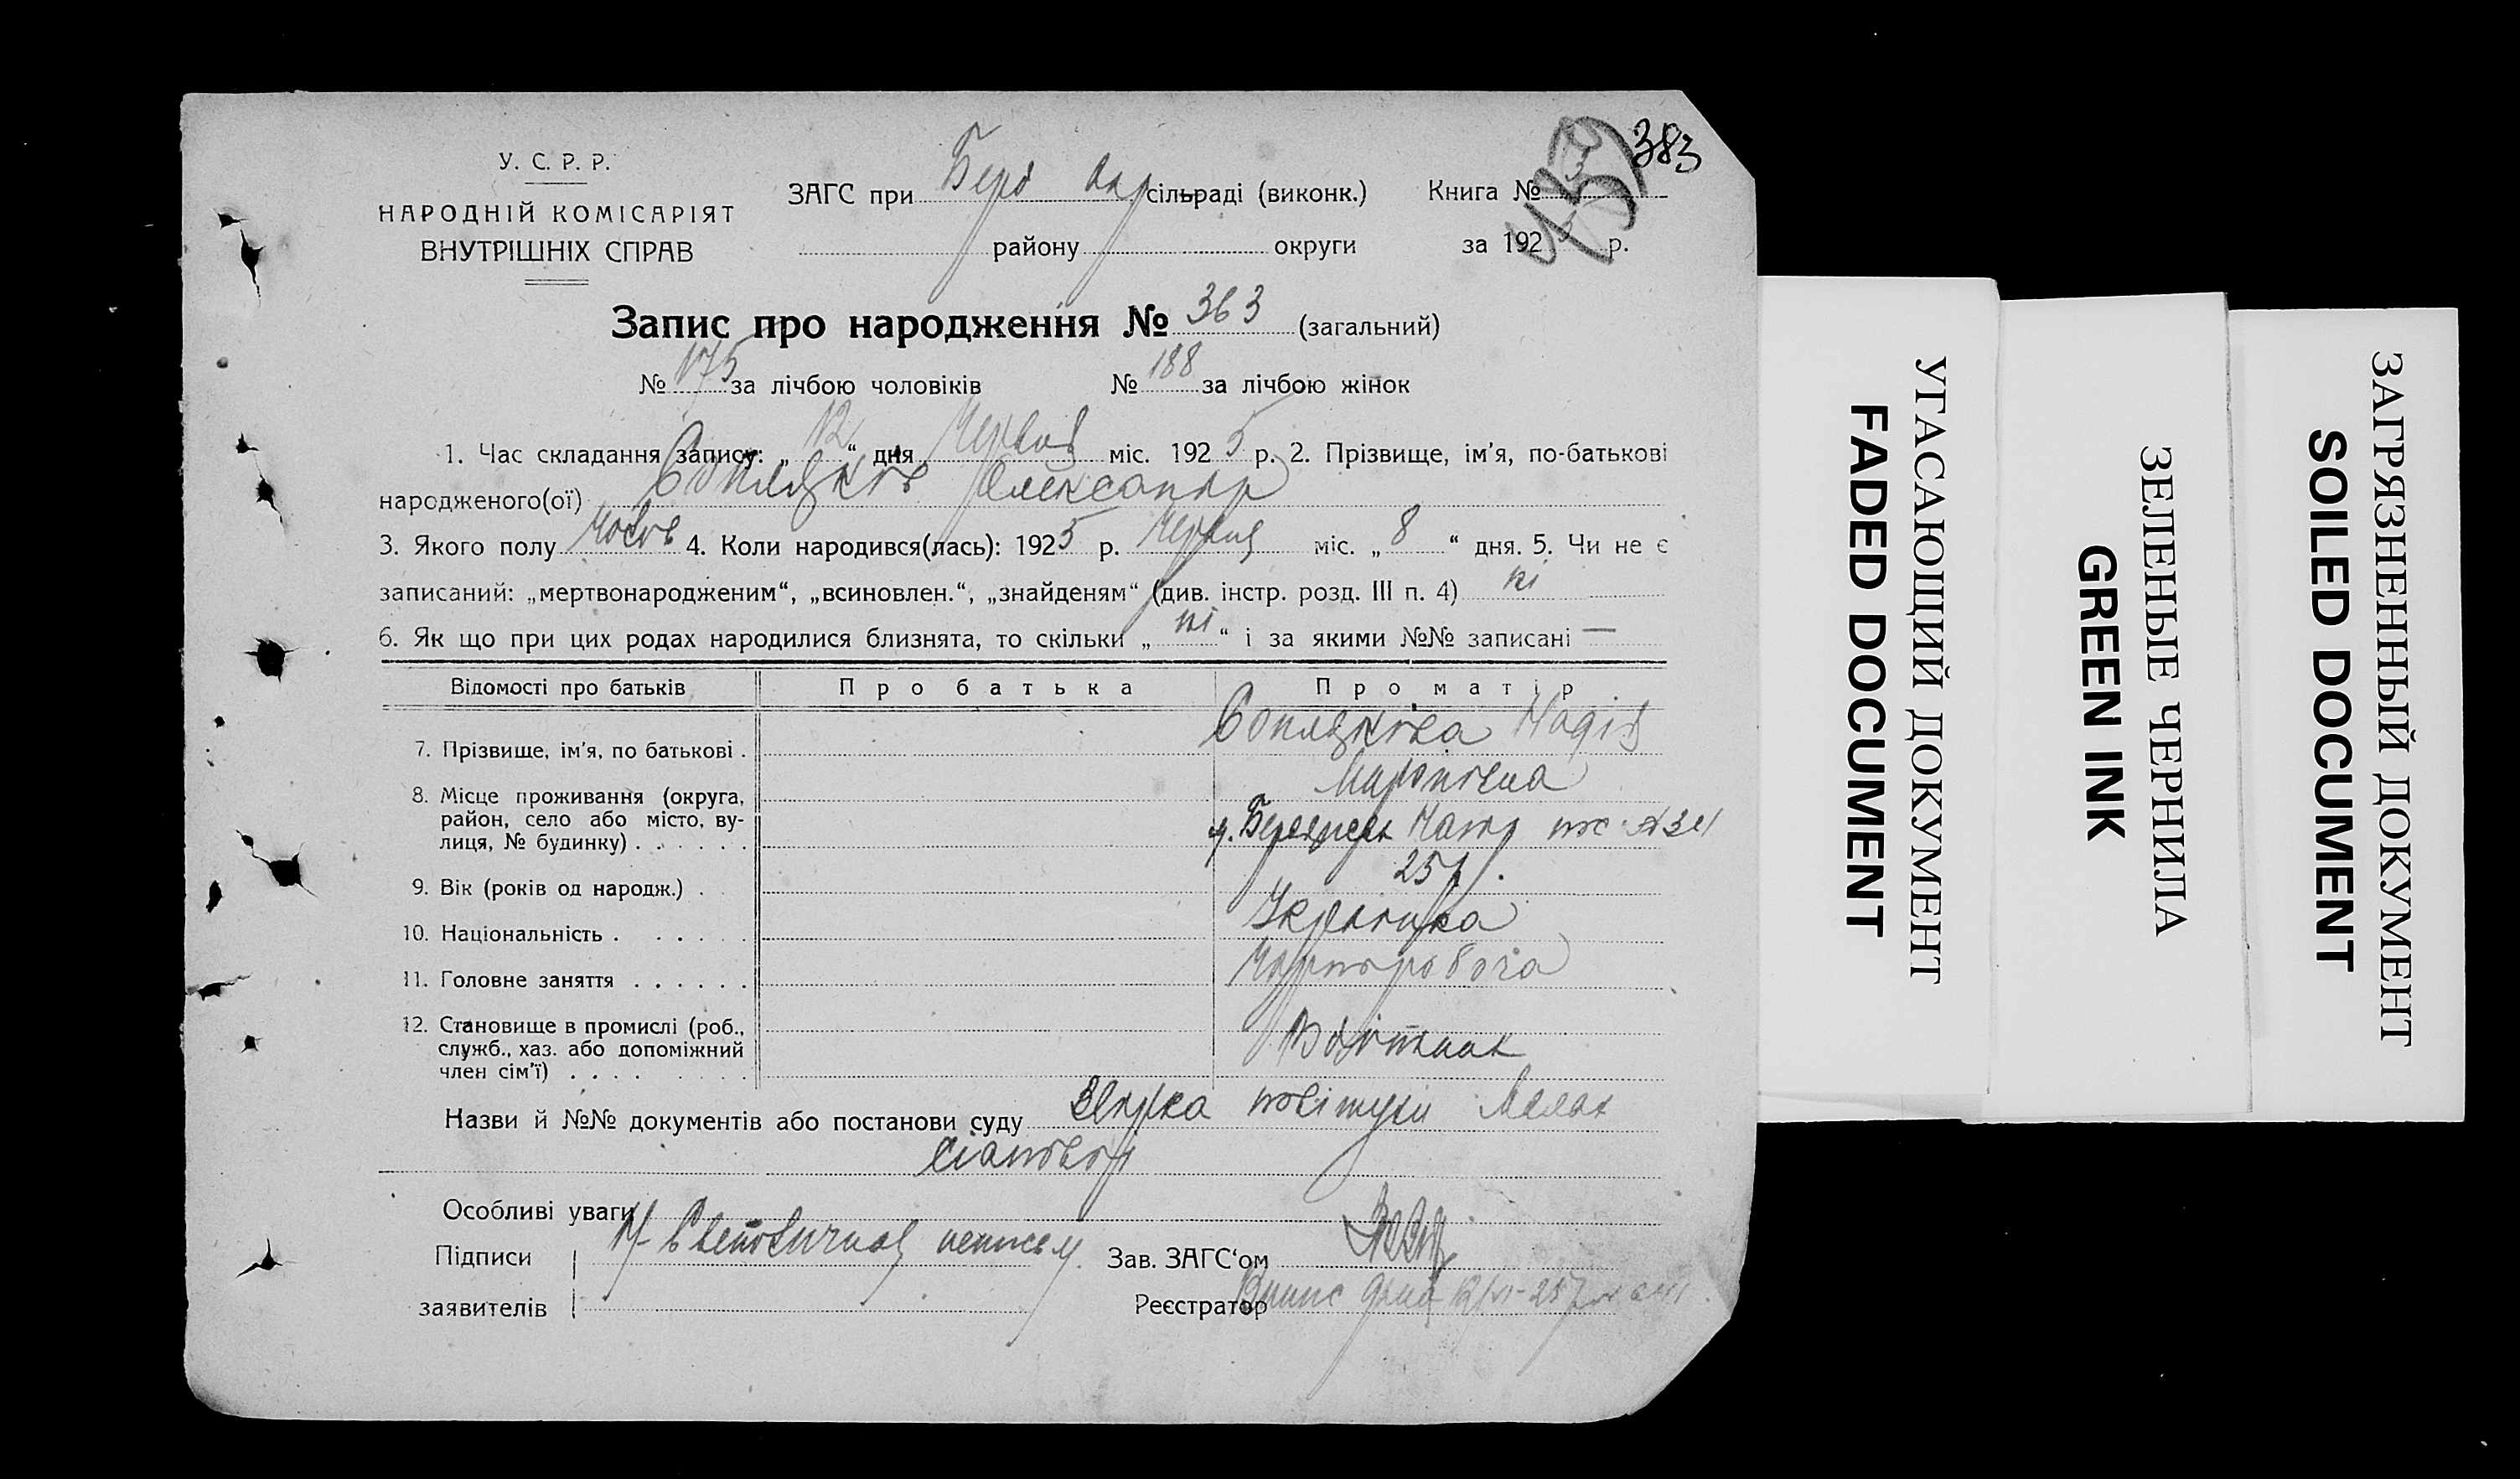 383
У. С. Р. Р.
НАРОДНІЙ КОМІСАРІЯТ
ВНУТРІШНІХ СПРАВ
ЗАГС при Берд Окр сільраді (виконк.) Книга №
району округи за 1925 р.
Запис про народження № 363 (загальний)
№ 175 за лічбою чоловіків № 188 за лічбою жінок
1. Час складання запису: „ 12 “ дня Червня міс. 1925 р. 2. Прізвище, ім'я, по-батькові
народженого(ої) Олександр
3. Якого полу 4. Коли народився(лась): 1925 р. Червня міс. „ 8 “ дня. 5. Чи не є
записаний: „мертвонародженим“, „всиновлен.“, „знайденям“ (див. інстр. розд. III п. 4) ні
6. Як що при цих родах народилися близнята, то скільки „ ні “ і за якими №№ записані —
Відомості про батьків Про батька Про матір
7. Прізвище, ім'я, по батькові . Надія
8. Місце проживання (округа,
район, село або місто, ву-
лиця, № будинку) . . . . . .
9. Вік (років од народж.) . 25 р.
10. Національність . . . . . . Українка
11. Головне заняття . . . . . . Чорноробоча
12. Становище в промислі (роб.,
служб., хаз. або допоміжний
член сім'ї) . . . .
Назви й №№ документів або постанови суду повітухи
Особливі уваги
Підписи Зав. ЗАГС'ом
заявителів Реєстратор
УГАСАЮЩИЙ ДОКУМЕНТ
FADED DOCUMENT
ЗЕЛЕНЫЕ ЧЕРНИЛА
GREEN INK
ЗАГРЯЗНЕННЫЙ ДОКУМЕНТ
SOILED DOCUMENT